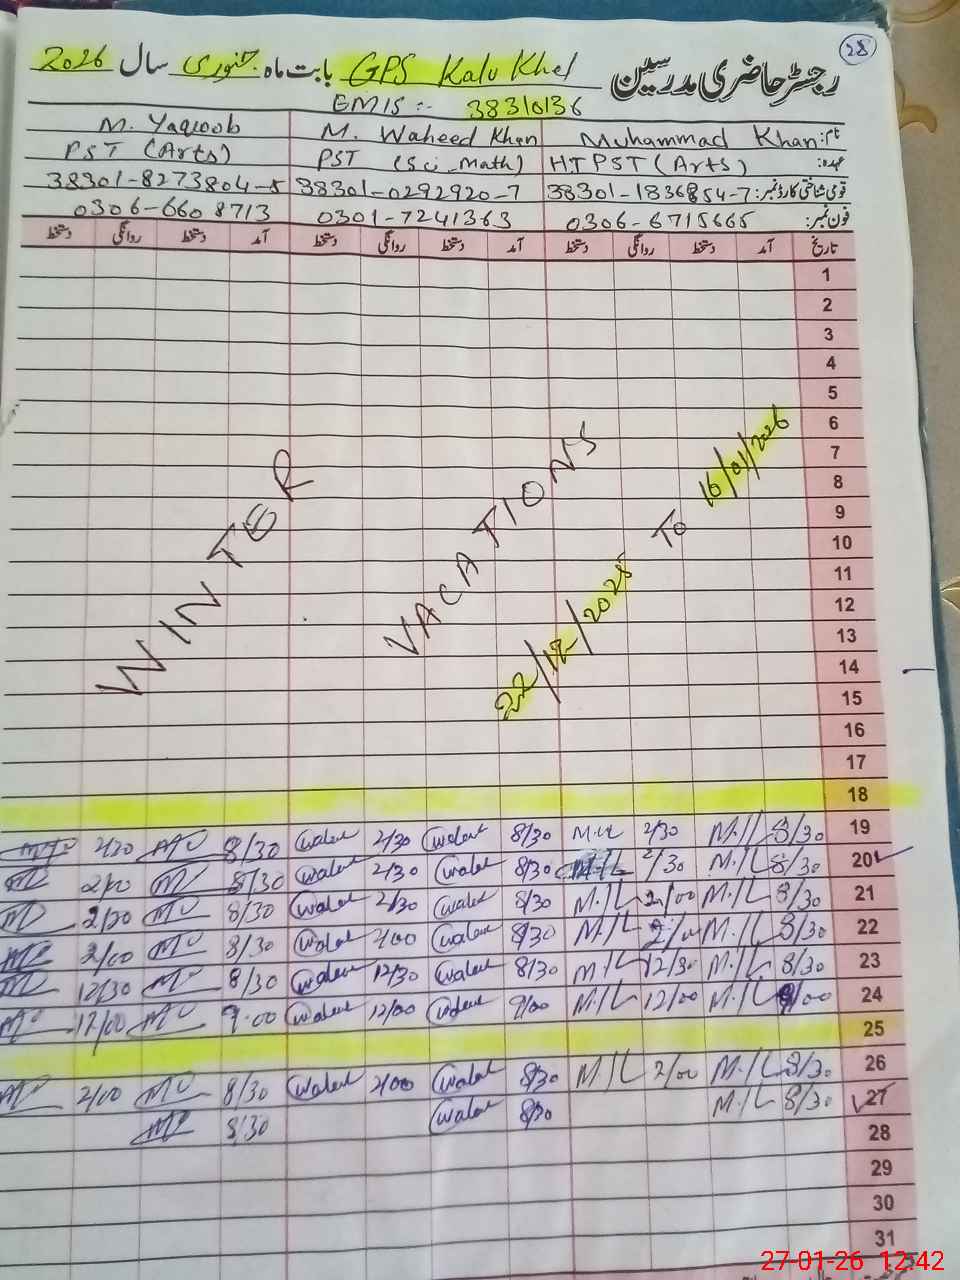 28
رجسٹر حاضری مدرسین GPS Kalu Khel بابت ماہ جنوری سال 2026
EMIS :- 38310136
نام: Muhammad Khan M. Waheed Khan M. Yaqoob
عہدہ: HTPST (Arts) PST (Sci_Math) PST (Arts)
قومی شناختی کارڈ نمبر: 38301-1836854-7 38301-0292920-7 38301-8273804-5
فون نمبر: 0306-6715665 0301-7241363 0306-6608713
تاریخ آمد دستخط روانگی دستخط آمد دستخط روانگی دستخط آمد دستخط روانگی دستخط
1
2
3
4
5
6
7
8
9
10
11
12
13
14
15
16
17
WINTER VACATIONS
22/12/2025 To 16/01/2026
18
19 8/30 M.IL 2/30 8/30 Waheed 2/30 Waheed 8/30
20 8/30 M.IL 2/30 M.IL 8/30 Waheed 2/30 Waheed 8/30
21 8/30 M.IL 2/00 M.IL 8/30 Waheed 2/30 Waheed 8/30
22 8/30 M.IL 2/00 M.IL 8/30 Waheed 2/00 Waheed 8/30 2/00
23 8/30 M.IL 12/30 M.IL 8/30 Waheed 12/30 Waheed 8/30 12/30
24 9/00 M.IL 12/00 M.IL 9/00 Waheed 12/00 Waheed 9.00 12/00
25
26 8/30 M.IL 2/00 M.IL 8/30 Waheed 2/00 Waheed 8/30 2/00
27 8/30 M.IL 8/30 Waheed 8/30
28
29
30
31
27-01-26 12:42